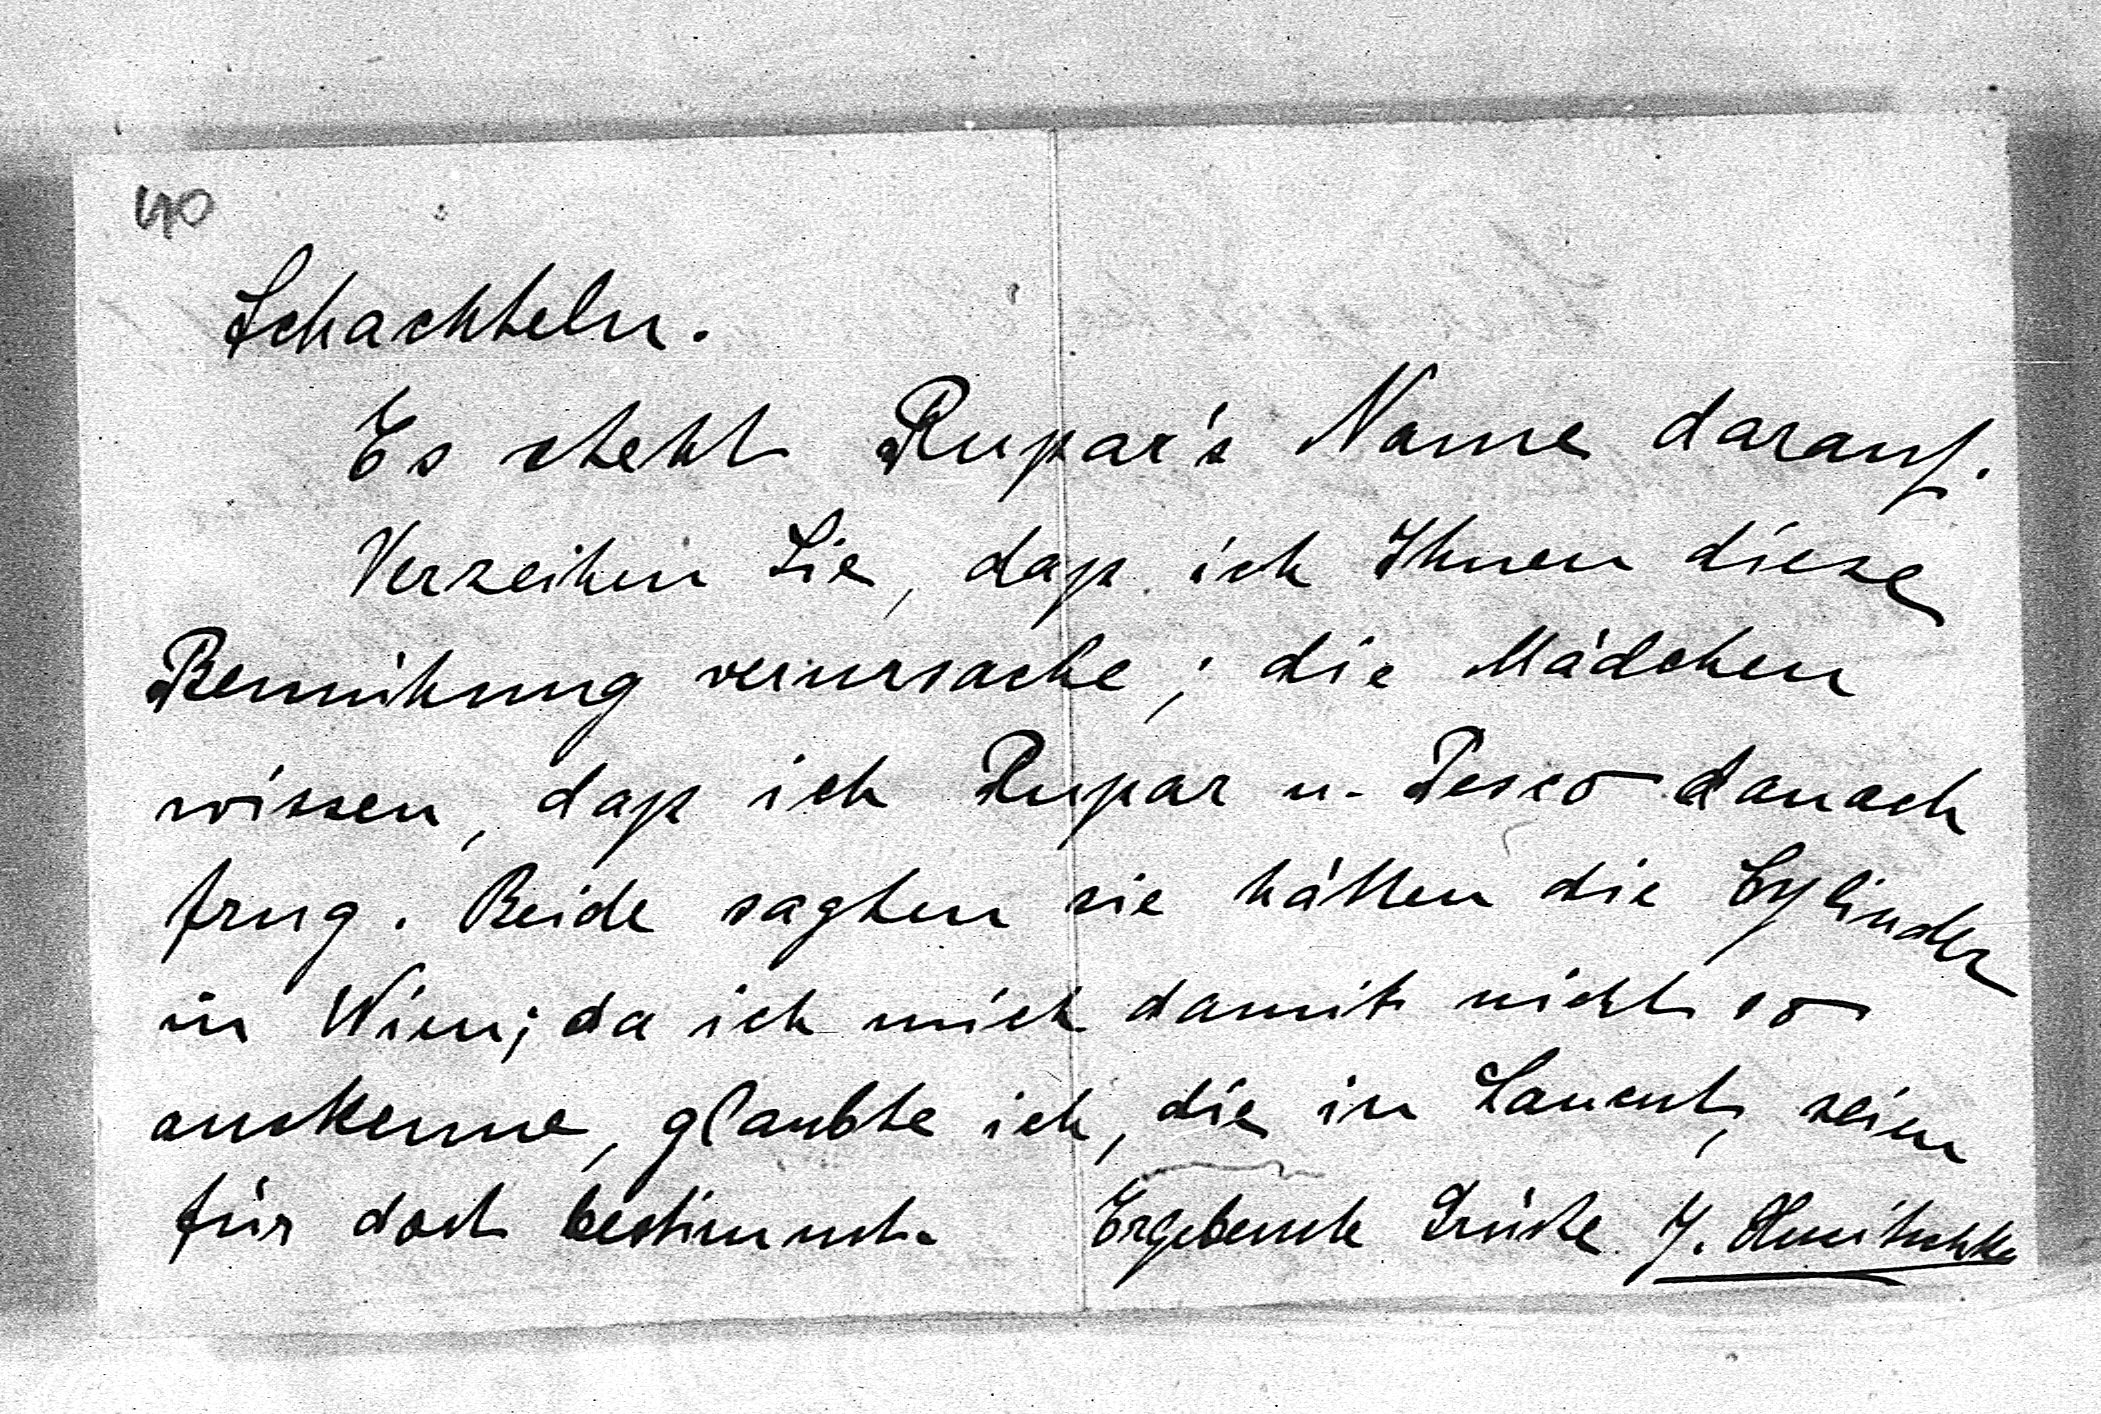 40
Schachteln.
Es steht Rupar's Name darauf.
Verzeihen Sie, daß ich Ihnen diese
Bemühung verursache; die Mädchen
wissen, daß ich Rupar u. Pesco danach
frug. Beide sagten sie hätten die Cylinder
in Wien; da ich mich damit nicht so
auskenne, glaubte ich, die in Lancut, seien
für dort bestimmt. Ergebenste Grüße J.